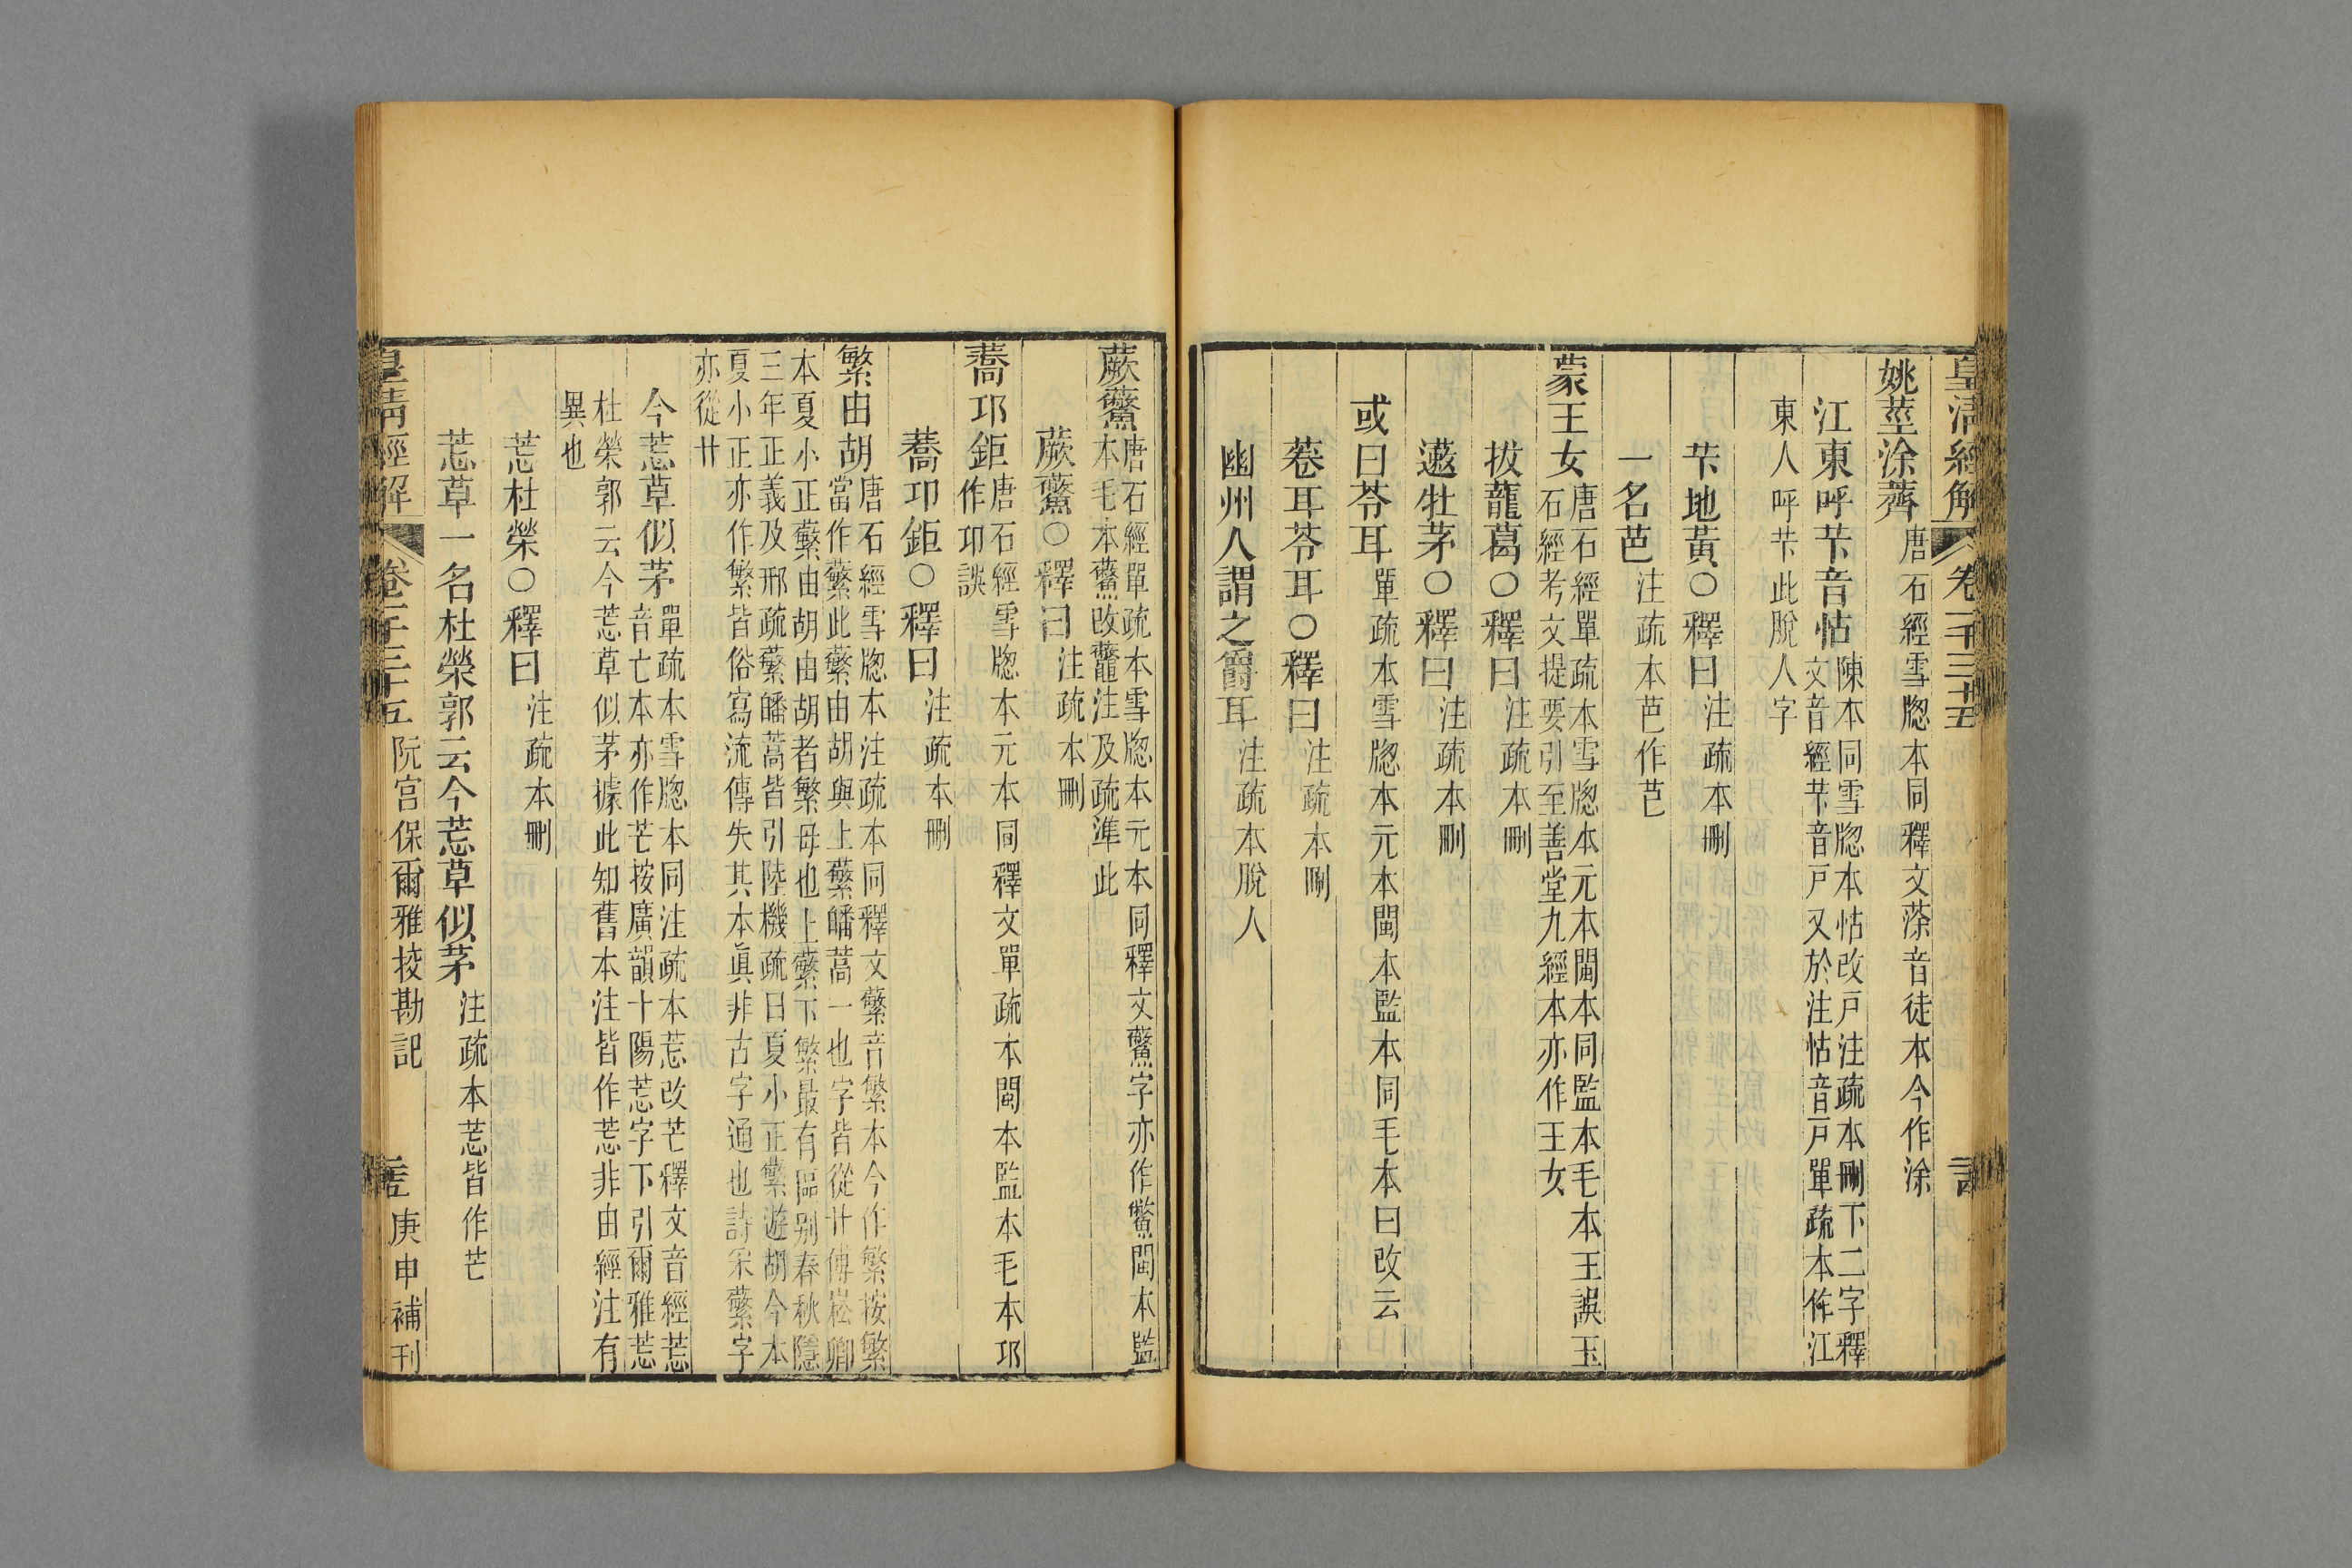 皇清經解 卷一千三十五
姚莖涂薺唐石經雪牕本同釋文蒤音徒本今作涂
江東呼芐音怙陳本同雪牕本怙改戸注疏本刪下二字釋
文音經芐音戸又於注怙音戸單疏本作江
東人呼芐此脫人字
芐地黃○釋曰注疏本刪
一名芭注疏本芭作芑
蒙王女唐石經單疏本雪牕本元本閩本同監本毛本王誤玉
石經考文提要引至善堂九經本亦作王女
拔蘢葛○釋曰注疏本刪
藗牡茅○釋曰注疏本刪
或曰苓耳單疏本雪牕本元本閩本監本同毛本曰改云
菤耳苓耳○釋曰注疏本刪
幽州人謂之爵耳注疏本脫人
蕨虌唐石經單疏本雪牕本元本同釋文虌字亦作鱉閩本監
本毛本虌改鼈注及疏準此
蕨虌○釋曰注疏本刪
蕎邛鉅唐石經雪牕本元本同釋文單疏本閩本監本毛本邛
作卭誤
蕎卭鉅○釋曰注疏本刪
繁由胡唐石經雪牕本注疏本同釋文蘩音繁本今作繁按繁
當作蘩此蘩由胡與上蘩皤蒿一也字皆從廾傅崧卿
本夏小正蘩由胡由胡者繁母也上蘩下繁最有區别春秋隱
三年正義及邢疏蘩皤蒿皆引陸機疏曰夏小正蘩遊胡今本
夏小正亦作繁皆俗寫流傳失其本眞非古字通也詩采蘩字
亦從廾
今莣草似茅單疏本雪牕本同注疏本莣改芒釋文音經莣
音亡本亦作芒按廣韻十陽莣字下引爾雅莣
杜榮郭云今莣草似茅據此知舊本注皆作莣非由經注有
異也
莣杜榮○釋曰注疏本刪
莣草一名杜榮郭云今莣草似茅注疏本莣皆作芒
皇清經解 卷一千三十五 阮宮保爾雅挍勘記 庚申補刊